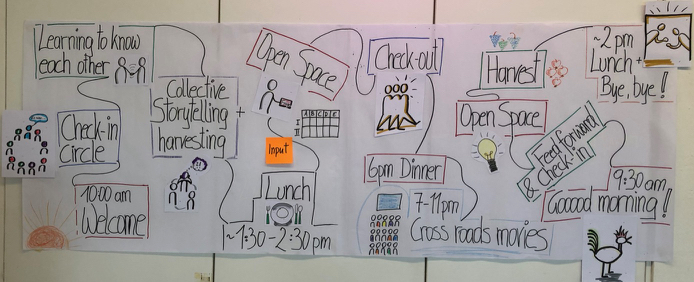 Learning to know
each other
Check-in
Circle
10:00 am
Welcome
Collective
Storytelling
harvesting
+
Open Space
A B C D E
I
II
Input
Lunch
~1:30-2:30pm
Check-out
6pm Dinner
7-11pm
Cross roads movies
Harvest
Open Space
Feed forward
& check-in
9:30 am
Gooood morning!
~2 pm
Lunch +
Bye, bye!